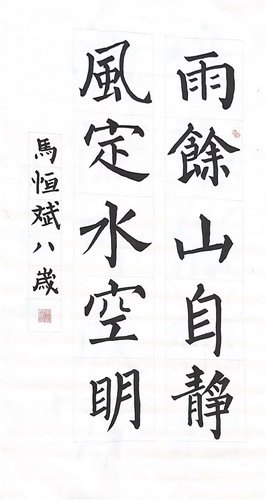 雨餘山自靜
風定水空明
馬恒斌八歲